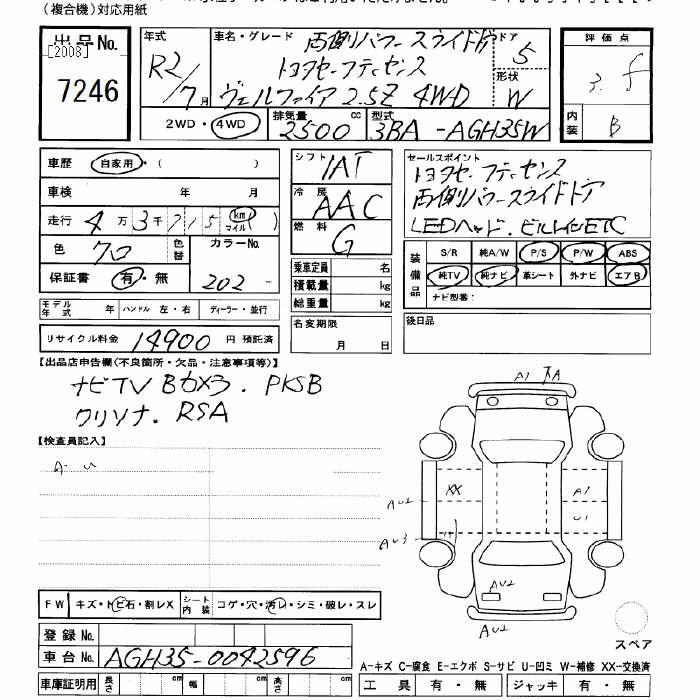 (複合機)対応用紙
出品No. [2008] 7246
年式 R2/7月
車名・グレード 両側パワースライドドア
トヨタセーフティセンス
ヴェルファイア 2.5Z 4WD
ドア 5
形状 W
評価点 3.5
内装 B
2WD・4WD 排気量 2500 cc 型式 3BA-AGH35W
車歴 自家用・( )
車検 年 月
走行 4万3千715 (km マイル)
色 クロ 色替 カラーNo. 202
保証書 有・無
シフト IAT
冷房 AAC
燃料 G
乗車定員 名
積載量 kg
総重量 kg
セールスポイント
トヨタセーフティセンス
両側パワースライドドア
LEDヘッド. ビルトインETC
装備品 S/R 純A/W P/S P/W ABS
純TV 純ナビ 革シート 外ナビ エアB
ナビ型番:
モデル年式 年 ハンドル 左・右 ディーラー・並行
リサイクル料金 14900 円 預託済
名変期限 月 日
後日品
【出品店申告欄(不良箇所・欠品・注意事項等)】
ナビTV Bカメラ. PKSB
クリソナ. RSA
【検査員記入】
A-U
A1
XX
A1
U1
AU2
AU3
AU2
AU2
スペア
FW キズ・トビ石・割レX シート内装 コゲ・穴・汚レ・シミ・破レ・スレ
登録No.
車台No. AGH35-0042596
車庫証明用 長さ cm 幅 cm 高さ cm
A-キズ C-腐食 E-エクボ S-サビ U-凹ミ W-補修 XX-交換済
工具 有・無 ジャッキ 有・無